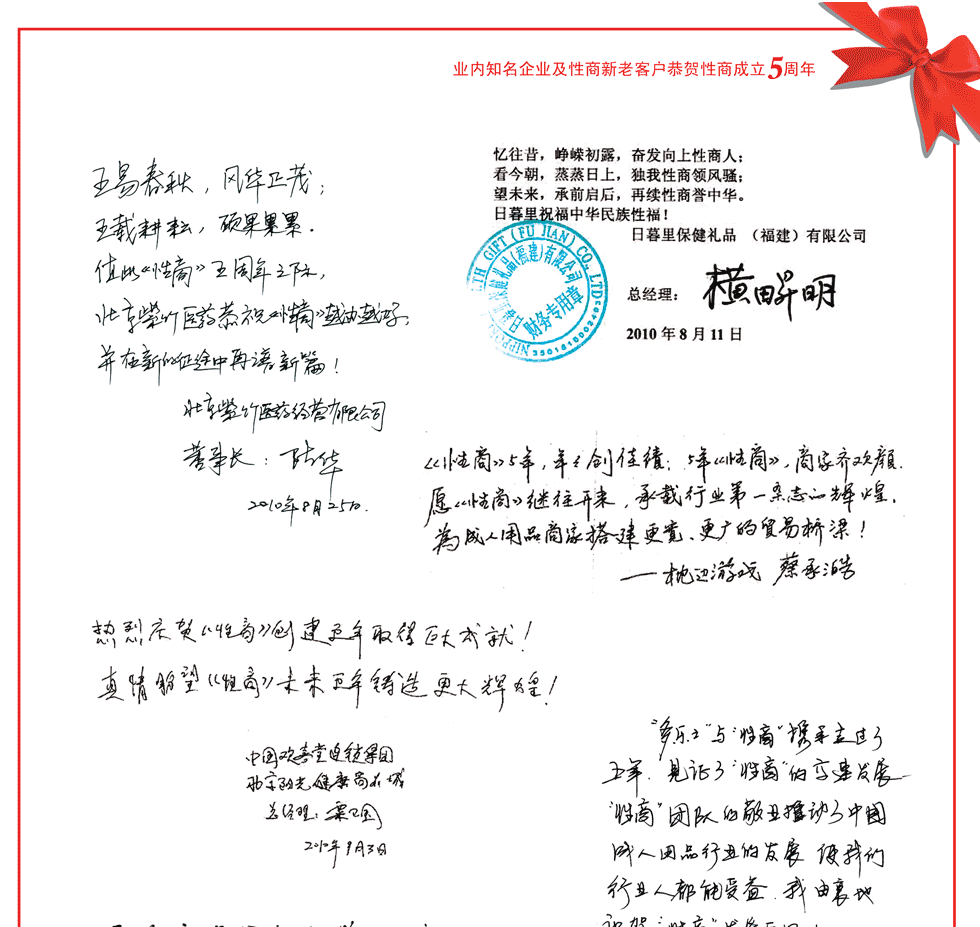 业内知名企业及性商新老客户恭贺性商成立5周年
五易春秋，风华正茂；
五载耕耘，硕果累累．
值此《性商》五周年之际，
北京紫竹医药恭祝《性商》越油越好，
并在新的征途中再谱新篇！
北京紫竹医药经营有限公司
董事长：陆华
2010年8月25日．
忆往昔，峥嵘初露，奋发向上性商人；
看今朝，蒸蒸日上，独我性商领风骚；
望未来，承前启后，再续性商誉中华。
日暮里祝福中华民族性福！
日暮里保健礼品 （福建）有限公司
总经理： 横田昇明
2010 年 8 月 11 日
GIFT (FU JIAN) CO., LTD
礼品(福建)有限公司
财务专用章
《性商》5年，年年创佳绩；5年《性商》，商家齐欢颜．
愿《性商》继往开来，承载行业第一杂志的辉煌．
为成人用品商家搭建更宽、更广的贸易桥梁！
——枕边游戏 蔡承浩
热烈庆贺《性商》创建五年取得巨大成就！
真情盼望《性商》未来五年铸造更大辉煌！
中国欢喜堂连锁集团
北京阳光健康商城
总经理：
2010年9月3日
“多乐士”与“性商”携手走过了
五年．见证了“性商”的高速发展
“性商”团队的敬业推动了中国
成人用品行业的发展 使我们
行业人都能受益．我由衷地